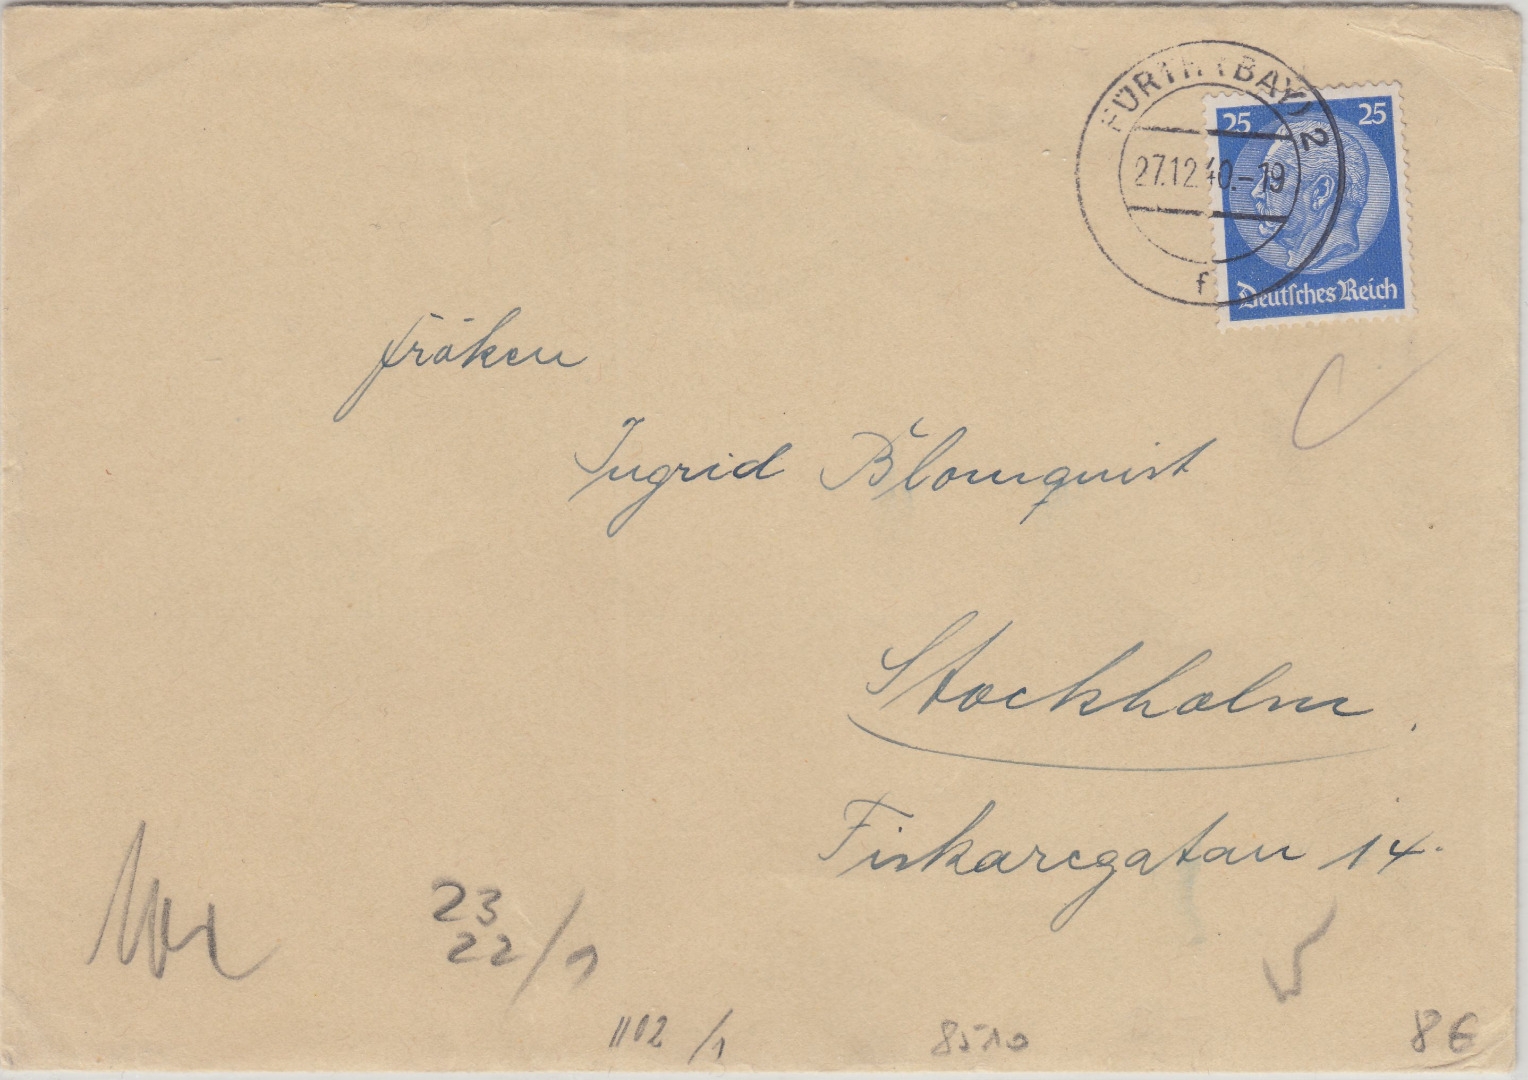 FÜRTH (BAY) 2
27.12.40.-19
f
25 25
Deutsches Reich
Fröken
Ingrid Blomquist
Stockholm.
Fiskaregatan 14.
23
22/1
1102/1
8510
8 €